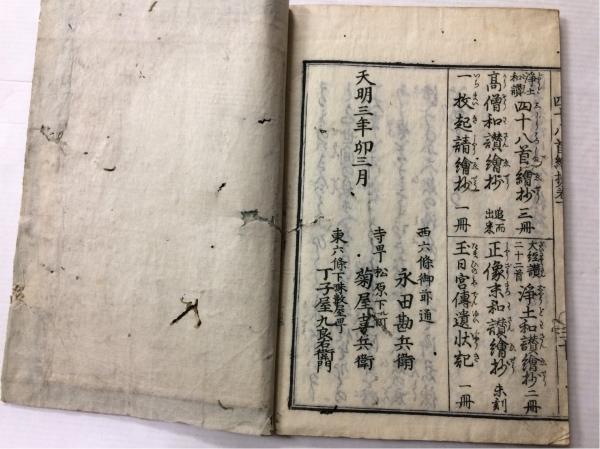 四十八首繪抄
浄土和讃 四十八首繪抄 三冊
高僧和讃繪抄 追而出来
一枚起請繪抄 一冊
大経讃二十二首 浄土和讃繪抄 二冊
正像末和讃繪抄 未刻
玉日宮傳遺状記 一冊
天明三年卯三月
西六條御前通
永田勘兵衛
寺町松原下ル町
菊屋喜兵衛
東六條下珠數屋町
丁子屋九良右衛門